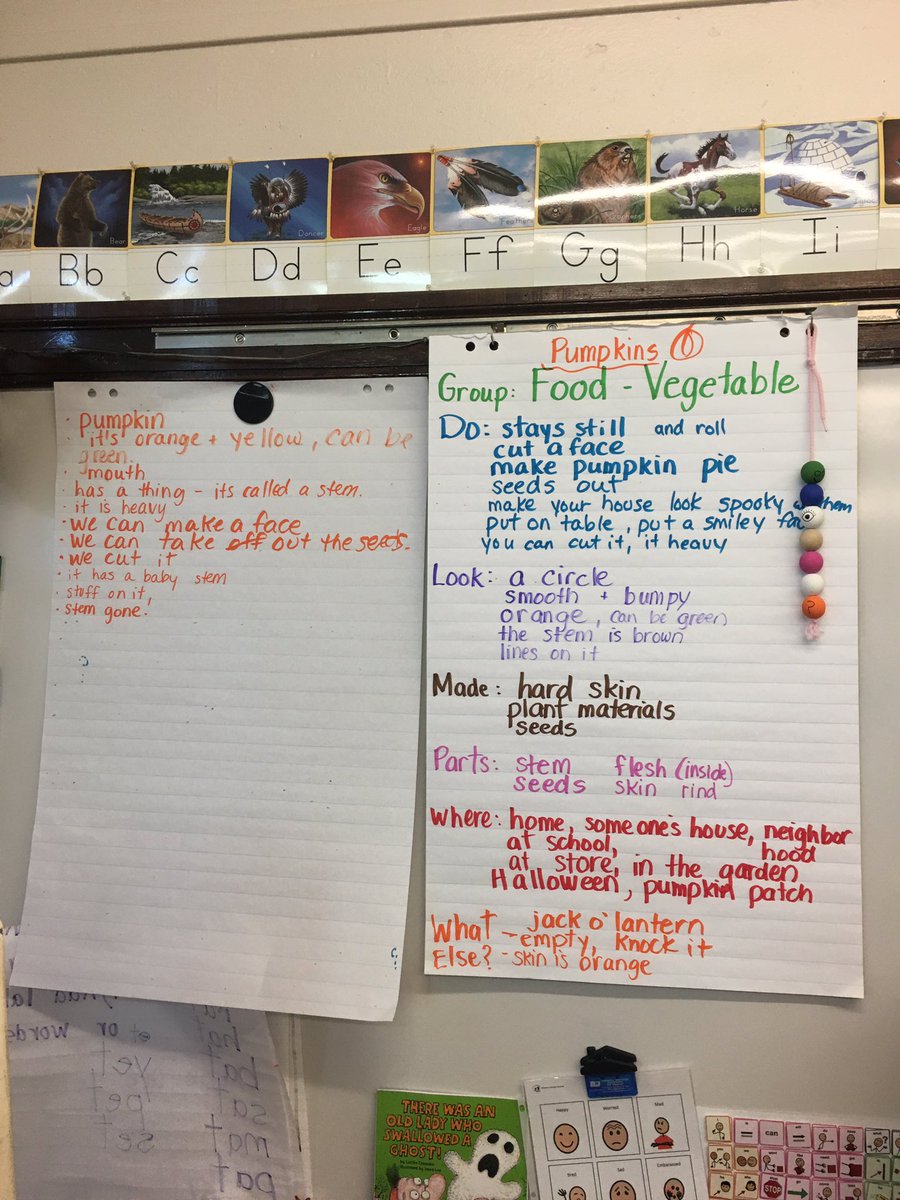 a Bb Cc Dd Ee Ff Gg Hh Ii
Bear
Dancer
Eagle
Feathers
Gophers
Horse
Igloo
· pumpkin
· it's orange + yellow, can be
green.
· mouth
· has a thing - its called a stem.
· it is heavy
· we can make a face
· we can take off out the seeds.
· we cut it
· it has a baby stem
· stuff on it,
· stem gone!
Pumpkins
Group: Food - Vegetable
Do: stays still and roll
cut a face
make pumpkin pie
seeds out
make your house look spooky
put on table, put a smiley
you can cut it, it heavy
Look: a circle
smooth + bumpy
orange, can be green
the stem is brown
lines on it
Made: hard skin
plant materials
seeds
Parts: stem flesh (inside)
seeds skin rind
Where: home, someone's house, neighbor
hood
at school,
at store, in the garden
Halloween, pumpkin patch
What jack o'lantern
- empty, knock it
Else? - skin is orange
?
et or words
yet
pet
set
hat
bat
sat
mat
pat
THERE WAS AN
OLD LADY WHO
SWALLOWED A
GHOST!
Happy
Worried
Mad
Tired
Sad
Embarrassed
can
STOP